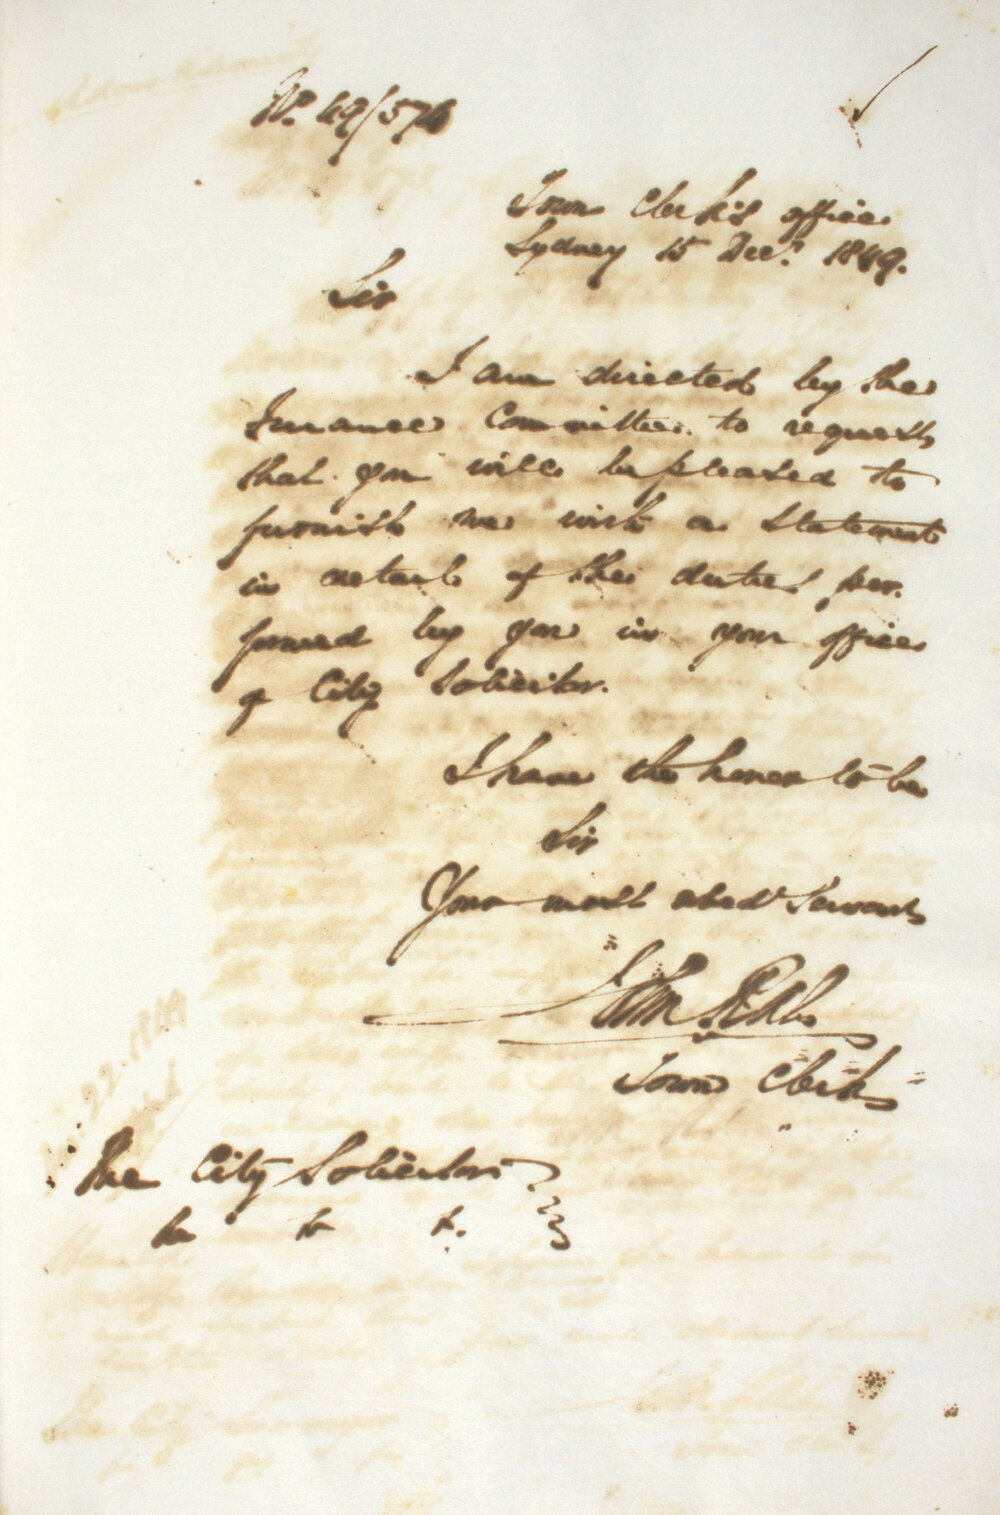 No. 49/576
Town Clerk's office
Sydney 15 Decr. 1849.
Sir
I am directed by the
Finance Committee to request
that you will be pleased to
furnish me with a Statement
in detail of the duties per-
formed by you in your office
of City Solicitor.
I have the honor to be
Sir
Your most obedt Servant
John Rae
Town Clerk
The City Solicitor